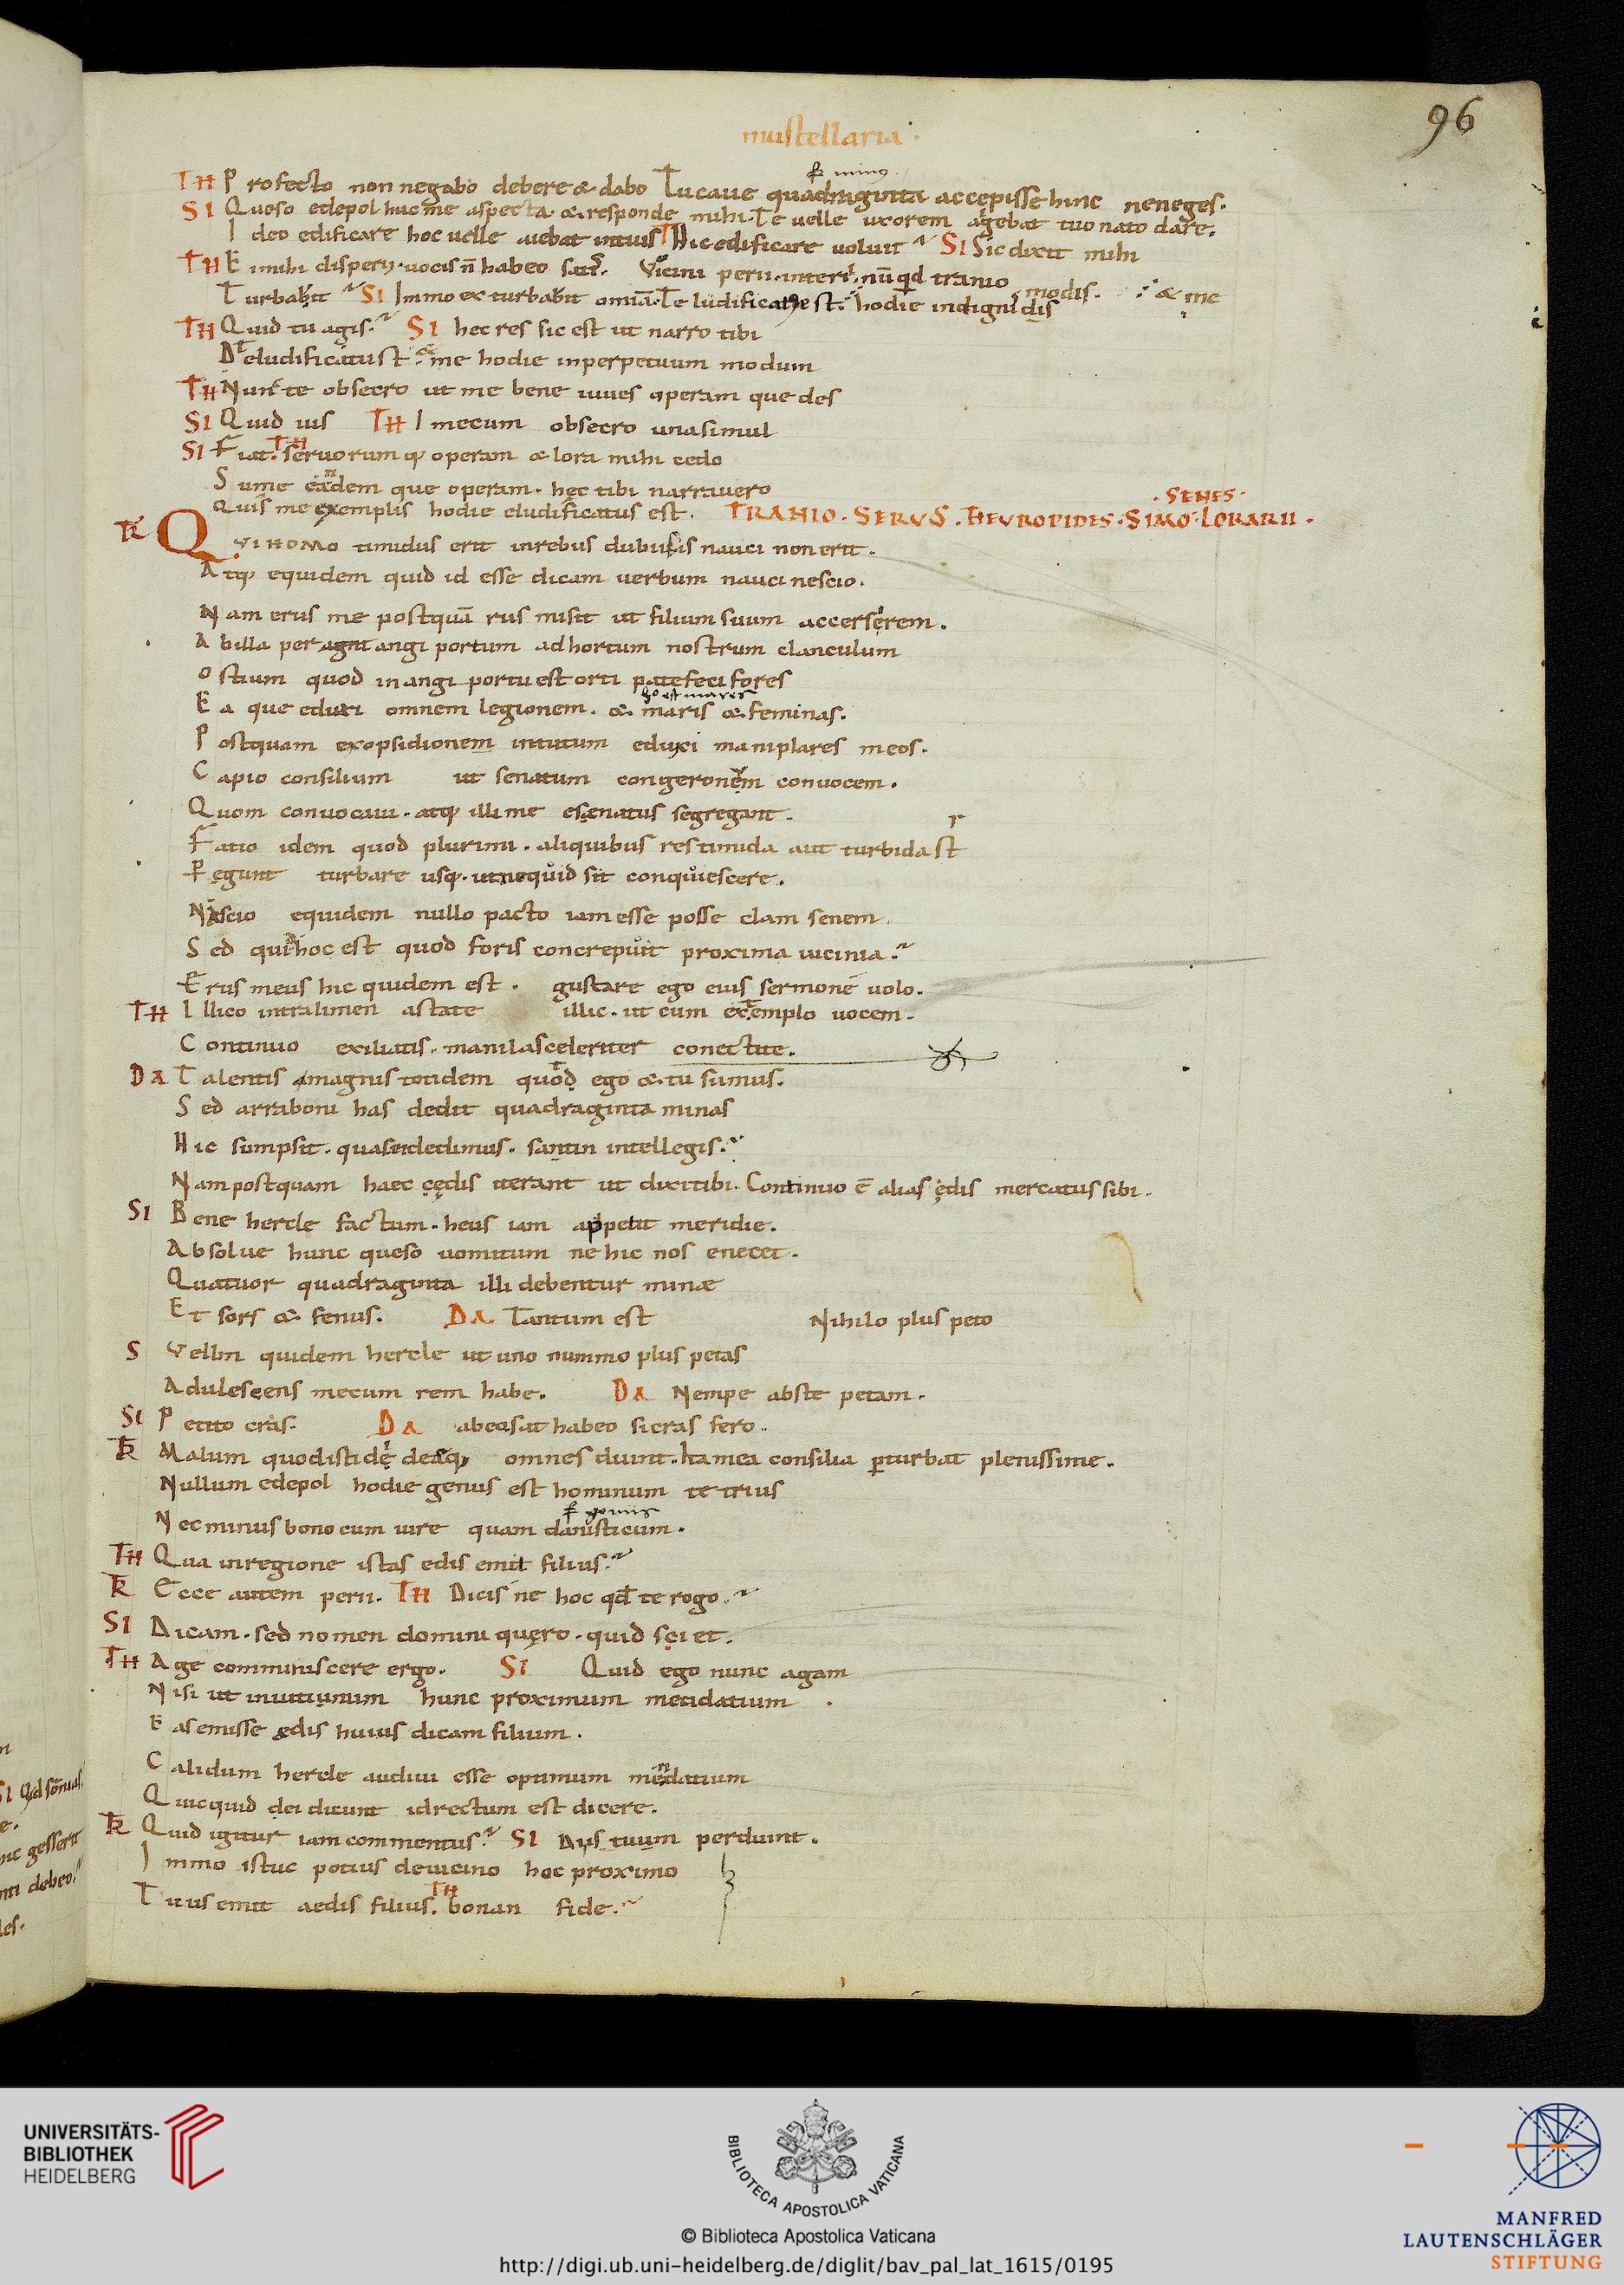 96
mustellaria
TH Profecto non negabo debere & dabo Tu caue quadraginta accepisse hinc neneges.
SI Quęso edepol huc me aspecta & responde mihi. Te uelle uxorem agebat tuo nato dare.
Ideo edificare hoc uelle aiebat intuus TH Hic edificare uoluit SI Sic dixit mihi
TH Ei mihi disperii uocis n̄ habeo satis. Vicini perii interii nū qd tranio
Turbauit SI Immo exturbauit omnia Te ludificatus est hodie indignis modis. & me
TH Quid tu agis. SI hec res sic est ut narro tibi
Deludificatust me hodie inperpetuum modum
TH Nunc te obsecro ut me bene iuues operam que des
SI Quid uis TH I mecum obsecro unasimul
SI Fiat. TH seruorum q; operam & lora mihi cedo
Sume eadem que operam. hec tibi narrauero
Quis me exemplis hodie eludificatus est. TRANIO. SERUS. THEUROPIDES. SIMO. LORARII.
SENES.
TR QVI HOMO timidus erit inrebus dubiis nauci non erit.
Atq; equidem quid id esse dicam uerbum nauci nescio.
Nam erus me postquā rus misit ut filium suum accerserem.
Abilla per angi portum adhortum nostrum clanculum
Ostium quod in angi portu est orti patefeci fores
hoc est mares
Ea que eduxi omnem legionem. & maris & feminas.
Postquam exopsidionem intutum eduxi maniplares meos.
Capio consilium ut senatum congeronem conuocem.
Quom conuocaui. atq; illi me esenatus segregant.
Fatio idem quod plurimi. aliquibus res timida aut turbida st
Pegunt turbare usq. utnequid sit conquiescere.
Nascio equidem nullo pacto iam esse posse clam senem.
Sed quid hoc est quod foris concrepuit proxima uicinia.
Erus meus hic quidem est. gustare ego eius sermonē uolo.
TH Illico intralimen astate illic. ut cum extemplo uocem.
Continuo exiliatis. manilasceleriter conectite.
DA Talentis magnis totidem quod ego & tu sumus.
Sed arraboni has dedit quadraginta minas
Hic sumpsit. quasei dedimus. satin intellegis.
Nampostquam haec cędis iterant ut dixi tibi. Continuo ē alias ędis mercatus sibi.
SI Bene hercle factum. heus iam appetit meridie.
Absolue hunc queso uomitum ne hic nos enecet.
Quatuor quadraginta illi debentur minae
Et sors & fenus. DA Tantum est Nihilo plus peto
S Vellm quidem hercle ut uno nummo plus petas
Adulescens mecum rem habe. DA Nempe abste petam.
SI Petito cras. DA abeosat habeo sicras fero.
TR Malum quodisti dę deaq; omnes duint. Ita mea consilia perturbat plenissime.
Nullum edepol hodie genus est hominum te trius
Nec minus bono cum iure quam danisticum.
TH Qua inregione istas edis emit filius.
TR Ecce autem perii. TH Dicis ne hoc qd te rogo.
SI Dicam. sed nomen domini quęro. quid sciet.
TH Age comminiscere ergo. SI Quid ego nunc agam
Nisi ut inuitiunum hunc proximum metidatium
Eas emisse ędis huius dicam filium.
Calidum hercle audiui esse optimum mendatium
Quicquid dei dicunt idrectum est dicere.
TR Quid igitur iam commentus. SI Diis tuum perduint.
Immo istuc potius deuicino hoc proximo
Tuus emit aedis filius. TH bonan fide.
UNIVERSITÄTS-
BIBLIOTHEK
HEIDELBERG
BIBLIOTECA APOSTOLICA VATICANA
© Biblioteca Apostolica Vaticana
http://digi.ub.uni-heidelberg.de/diglit/bav_pal_lat_1615/0195
MANFRED
LAUTENSCHLÄGER
STIFTUNG